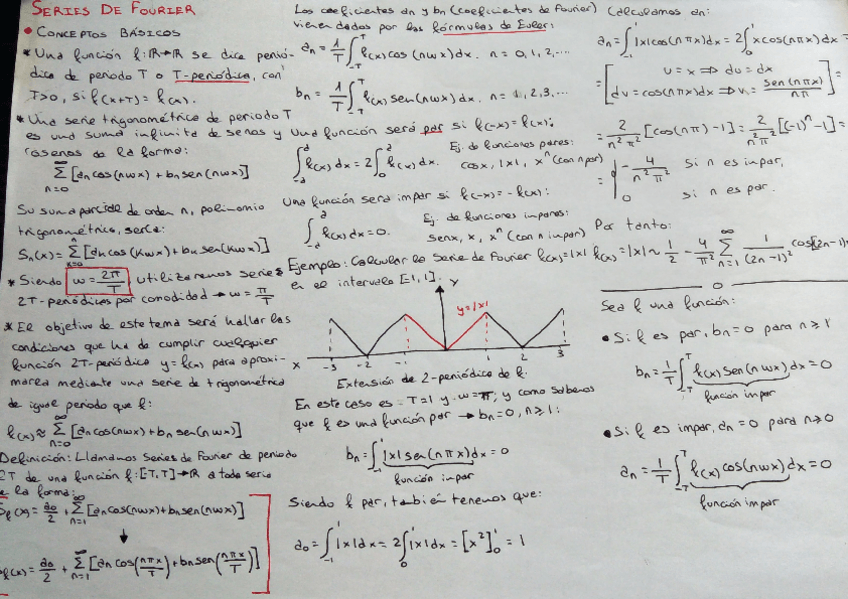 SERIES DE FOURIER
• CONCEPTOS BÁSICOS
* Una función f: ℝ→ℝ se dice perió-
dica de periodo T o T-periódica, con
T>0, si f(x+T) = f(x).
* Una serie trigonométrica de periodo T
es una suma infinita de senos y
cosenos de la forma:
∞ Σ n=0 [an cos(nωx) + bn sen(nωx)]
Su suma parcial de orden n, polinomio
trigonométrico, sería:
Sn(x) = n Σ k=0 [ak cos(kωx) + bk sen(kωx)]
* Siendo ω = 2π/T, utilizaremos series
2T-periódicas por comodidad → ω = π/T
* El objetivo de este tema será hallar las
condiciones que ha de cumplir cualquier
función 2T-periódica y=f(x) para aproxi-
marla mediante una serie de trigonométrica
de igual periodo que f:
f(x) ≈ ∞ Σ n=0 [an cos(nωx) + bn sen(nωx)]
Definición: Llamamos Series de Fourier de periodo
2T de una función f: [-T,T]→ℝ a toda serie
de la forma:
Sf(x) = a0/2 + ∞ Σ n=1 [an cos(nωx) + bn sen(nωx)]
↓
Sf(x) = a0/2 + ∞ Σ n=1 [an cos(nπx/T) + bn sen(nπx/T)]
Los coeficientes an y bn (coeficientes de Fourier)
vienen dados por las fórmulas de Euler:
an = 1/T ∫_{-T}^{T} f(x) cos(nωx) dx. n = 0, 1, 2, ...
bn = 1/T ∫_{-T}^{T} f(x) sen(nωx) dx. n = 1, 2, 3...
Una función será par si f(-x) = f(x):
∫_{-a}^{a} f(x) dx = 2∫_{0}^{a} f(x) dx.
Ej. de funciones pares:
cosx, |x|, xⁿ (con n par)
Una función será impar si f(-x) = -f(x):
∫_{-a}^{a} f(x) dx = 0.
Ej. de funciones impares:
senx, x, xⁿ (con n impar)
Ejemplo: Calcular la Serie de Fourier f(x) = |x|
en el intervalo [-1, 1].
y
y=|x|
x -3 -2 -1 1 2 3
Extensión de 2-periódica de f.
En este caso es T=1 y ω=π, y como sabemos
que f es una función par → bn = 0, n≥1:
bn = ∫_{-1}^{1} |x| sen(nπx) dx = 0
función impar
Siendo f par, también tenemos que:
a0 = ∫_{-1}^{1} |x| dx = 2∫_{0}^{1} |x| dx = [x²]_{0}^{1} = 1
Calculamos an:
an = ∫_{-1}^{1} |x| cos(nπx) dx = 2∫_{0}^{1} x cos(nπx) dx =
= [u = x ⇒ du = dx
dv = cos(nπx) dx ⇒ v = sen(nπx)/nπ] =
= 2/n²π² [cos(nπ) - 1] = 2/n²π² [(-1)ⁿ - 1] =
= { -4/n²π² si n es impar,
0 si n es par.
Por tanto:
f(x) = |x| ~ 1/2 - 4/π² ∞ Σ n=1 1/(2n-1)² cos[(2n-1)
Sea f una función:
• Si f es par, bn = 0 para n≥1
bn = 1/T ∫_{-T}^{T} f(x) sen(nωx) dx = 0
función impar
• Si f es impar, an = 0 para n≥0
an = 1/T ∫_{-T}^{T} f(x) cos(nωx) dx = 0
función impar